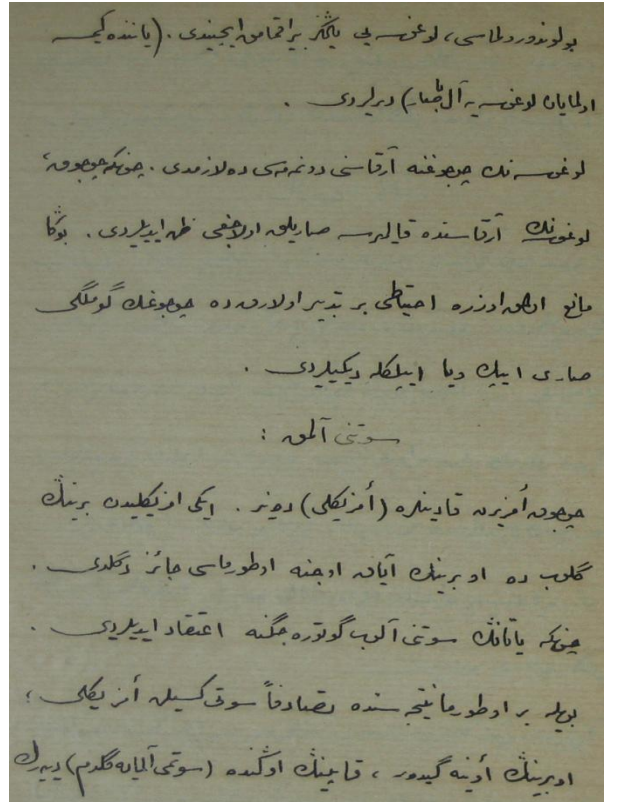 بولوندورولماسی، لوغوسه یی یالڭز براقمامق ایجیندی. (یاننده کیمسه
اولمایان لوغوسه یه آل باصار) دیرلردی.
لوغوسه نك چوجوغنه آرقاسنی دونمه مسی ده لازمدی. چونکه چوجوق،
لوغوسه نك آرقاسنده قالیرسه صاریلق اولاجغی ظن ایدیلیردی. بوڭا
مانع اولمق اوزره احتیاطی بر تدبیر اولارق ده چوجوغڭ گوملگی
صاری ایپك ویا ایپلکله دیکیلیردی.
سوتنی آلمق :
چوجوق أمزیرن قادینلره (أمزیکلی) دینیر. ایکی امزیکلیدن برینڭ
گلوب ده اوبرینڭ آیاق اوجنه اوطورماسی جائز دگلدی.
چونکه یاتانڭ سوتنی آلوب گوتوره جگنه اعتقاد ایدیلیردی.
بویله بر اوطورما نتیجه سنده تصادفاً سوتی کسیلن أمزیکلی،
اوبرینڭ أوینه گیدیور، قاپینڭ اوڭنده (سوتمی آلمایه گلدم) دییه رك